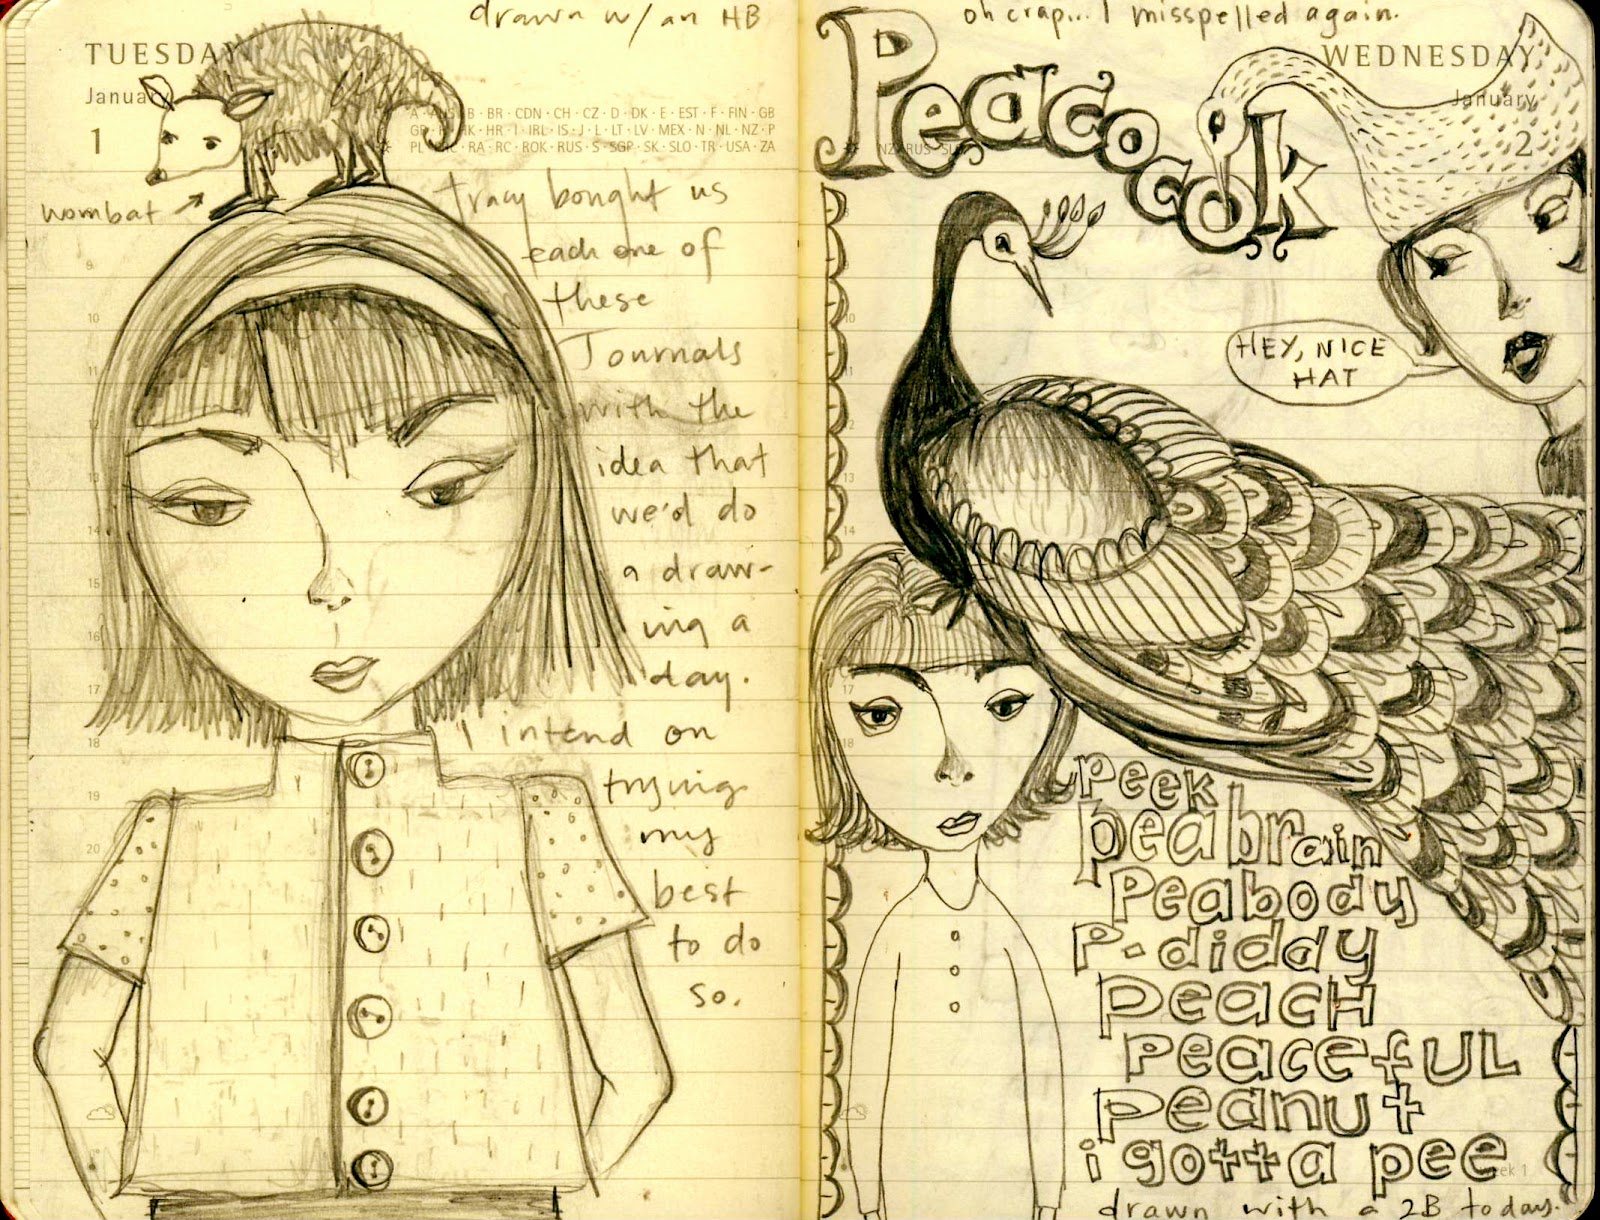 drawn w/ an HB
TUESDAY
January
1
A · AUS · B · BR · CDN · CH · CZ · D · DK · E · EST · F · FIN · GB
HK · HR · I · IRL · IS · J · L · LT · LV · MEX · N · NL · NZ · P
PL · RA · RC · ROK · RUS · S · SGP · SK · SLO · TR · USA · ZA
wombat
Tracy bought us
each one of
these
Journals
with the
idea that
we'd do
a draw-
ing a
day.
I intend on
trying
my
best
to do
so.
9
10
11
12
13
14
15
16
17
18
19
20
oh crap... I misspelled again.
WEDNESDAY
January
2
Peacocok
NZ RUS
HEY, NICE
HAT
10
11
12
13
14
17
18
peek
peabrain
Peabody
P. diddy
PeacH
PeacefUL
Peanut
i gotta pee
week 1
drawn with a 2B today.